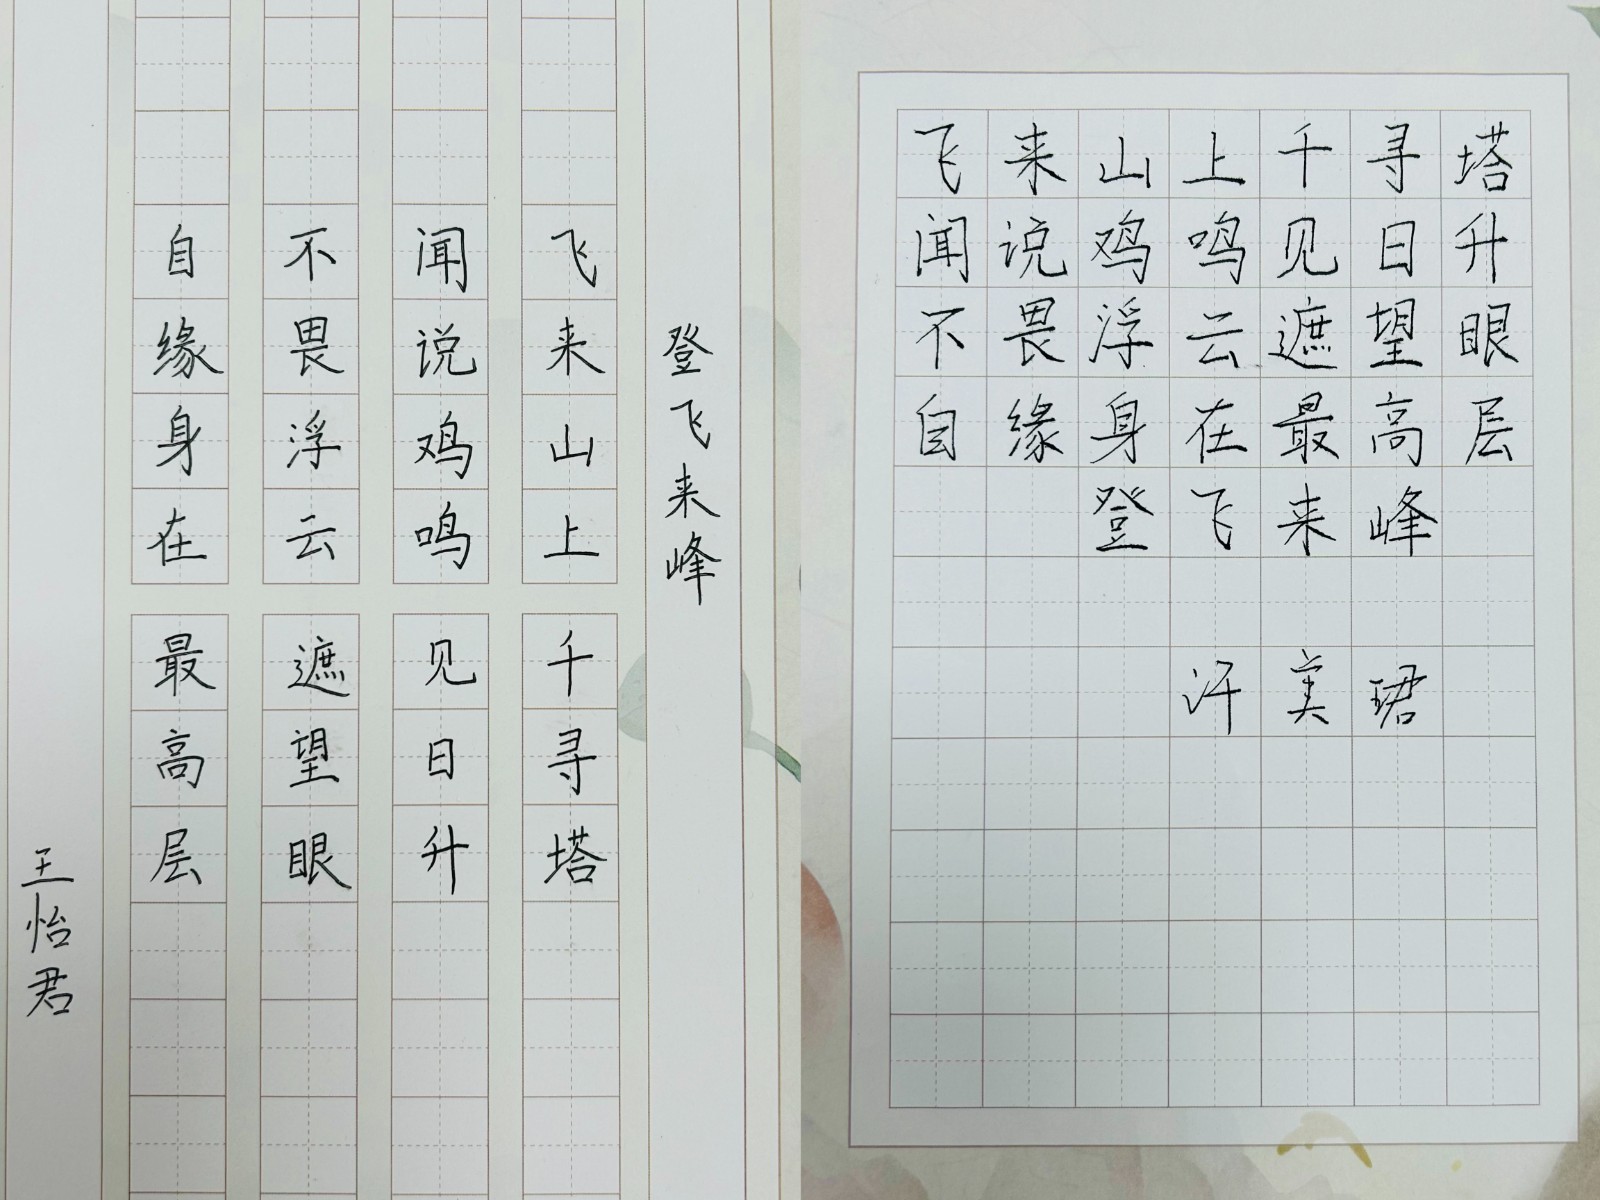 登飞来峰
飞来山上千寻塔
闻说鸡鸣见日升
不畏浮云遮望眼
自缘身在最高层
王怡君
飞来山上千寻塔
闻说鸡鸣见日升
不畏浮云遮望眼
自缘身在最高层
登飞来峰
汗美珺